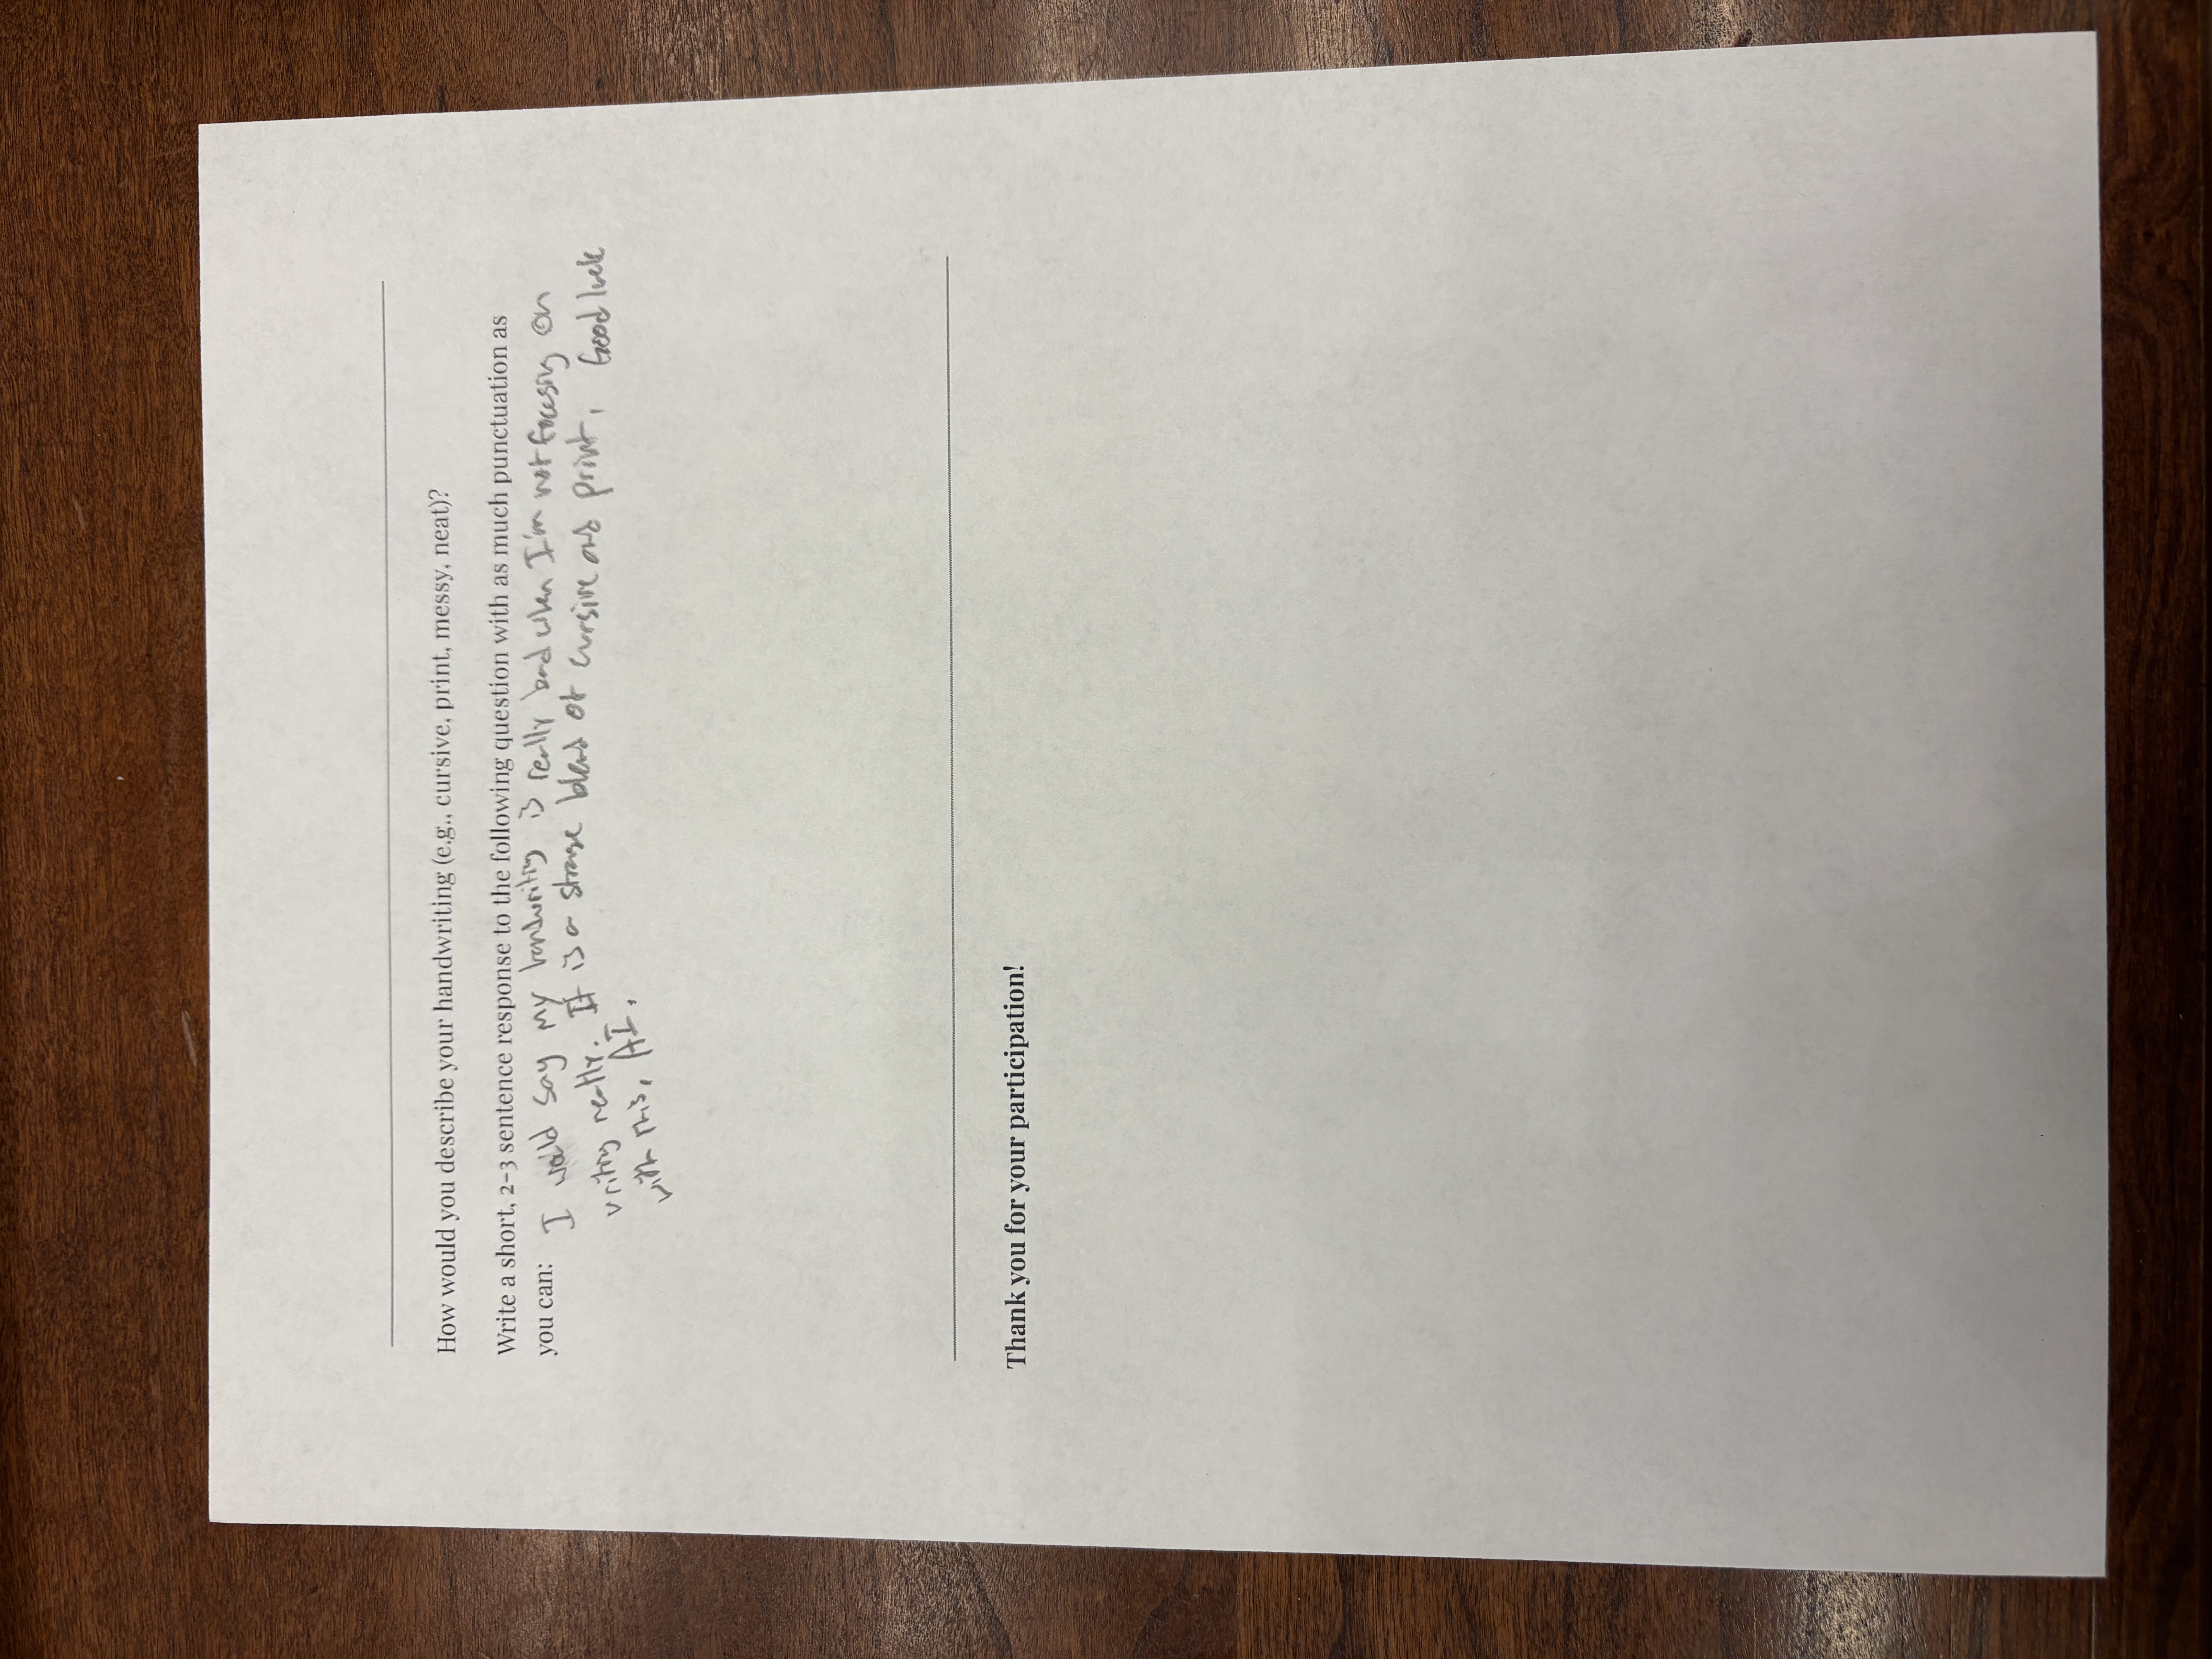 How would you describe your handwriting (e.g., cursive, print, messy, neat)?
Write a short, 2-3 sentence response to the following question with as much punctuation as
you can: I would say my handwriting is really bad when I'm not focusing on
writing neatly. It is a strange blend of cursive and print. Good luck
with this, AI.
Thank you for your participation!